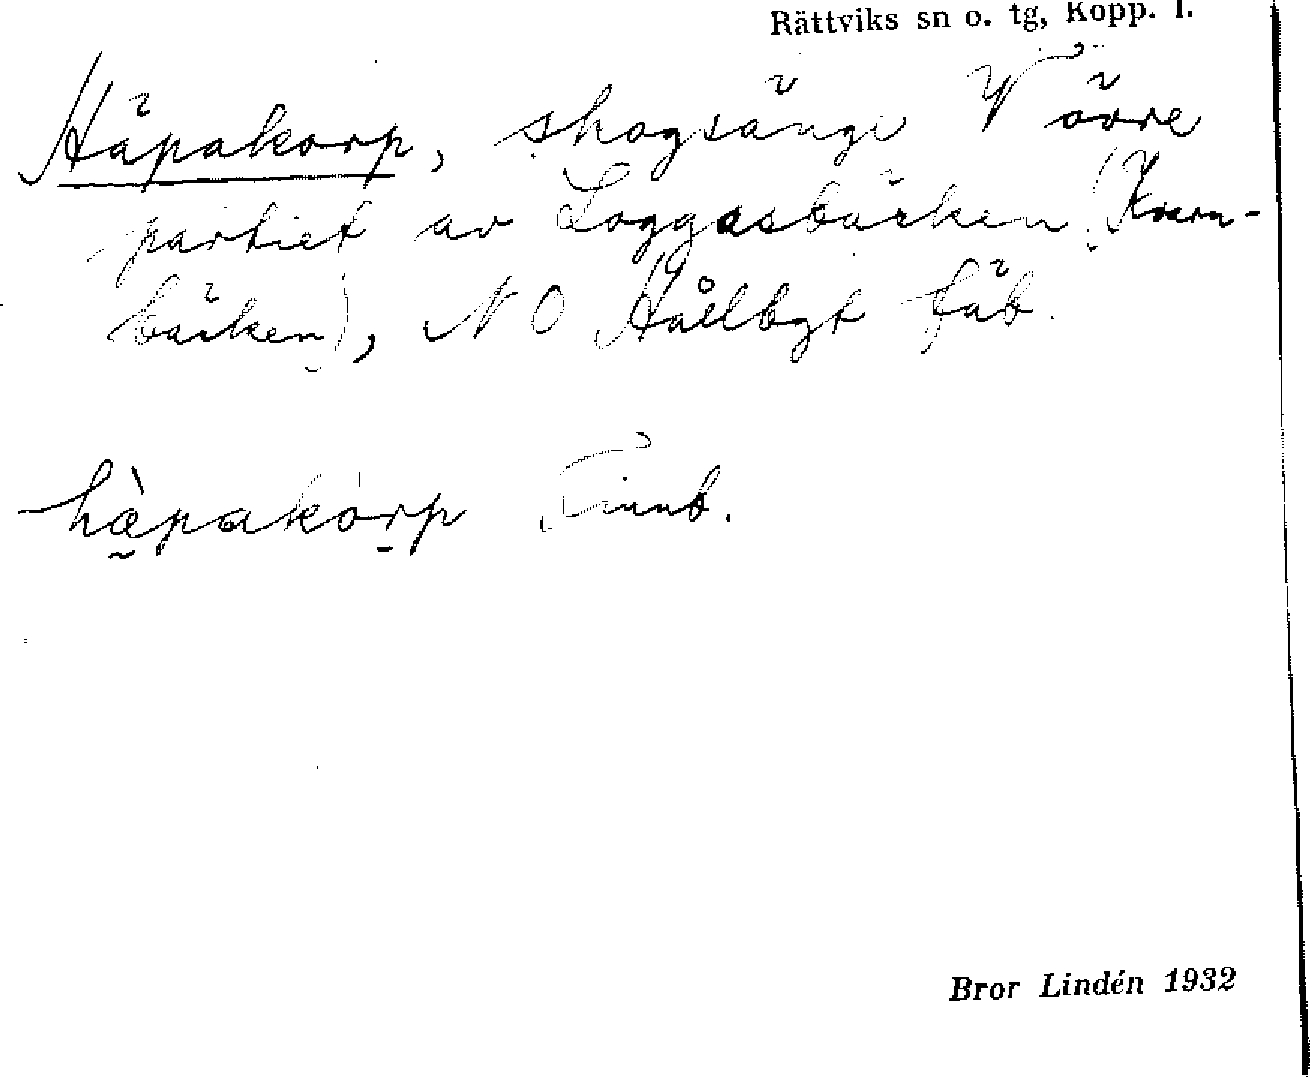 Rättviks sn o. tg, Kopp. l.
Häpakorp, skogsänge V övre
partiet av Loggasbäcken (Kvarn-
bäcken), NO Hållbgt fäb.
hæ̀pakórp Finnb.
Bror Lindén 1932